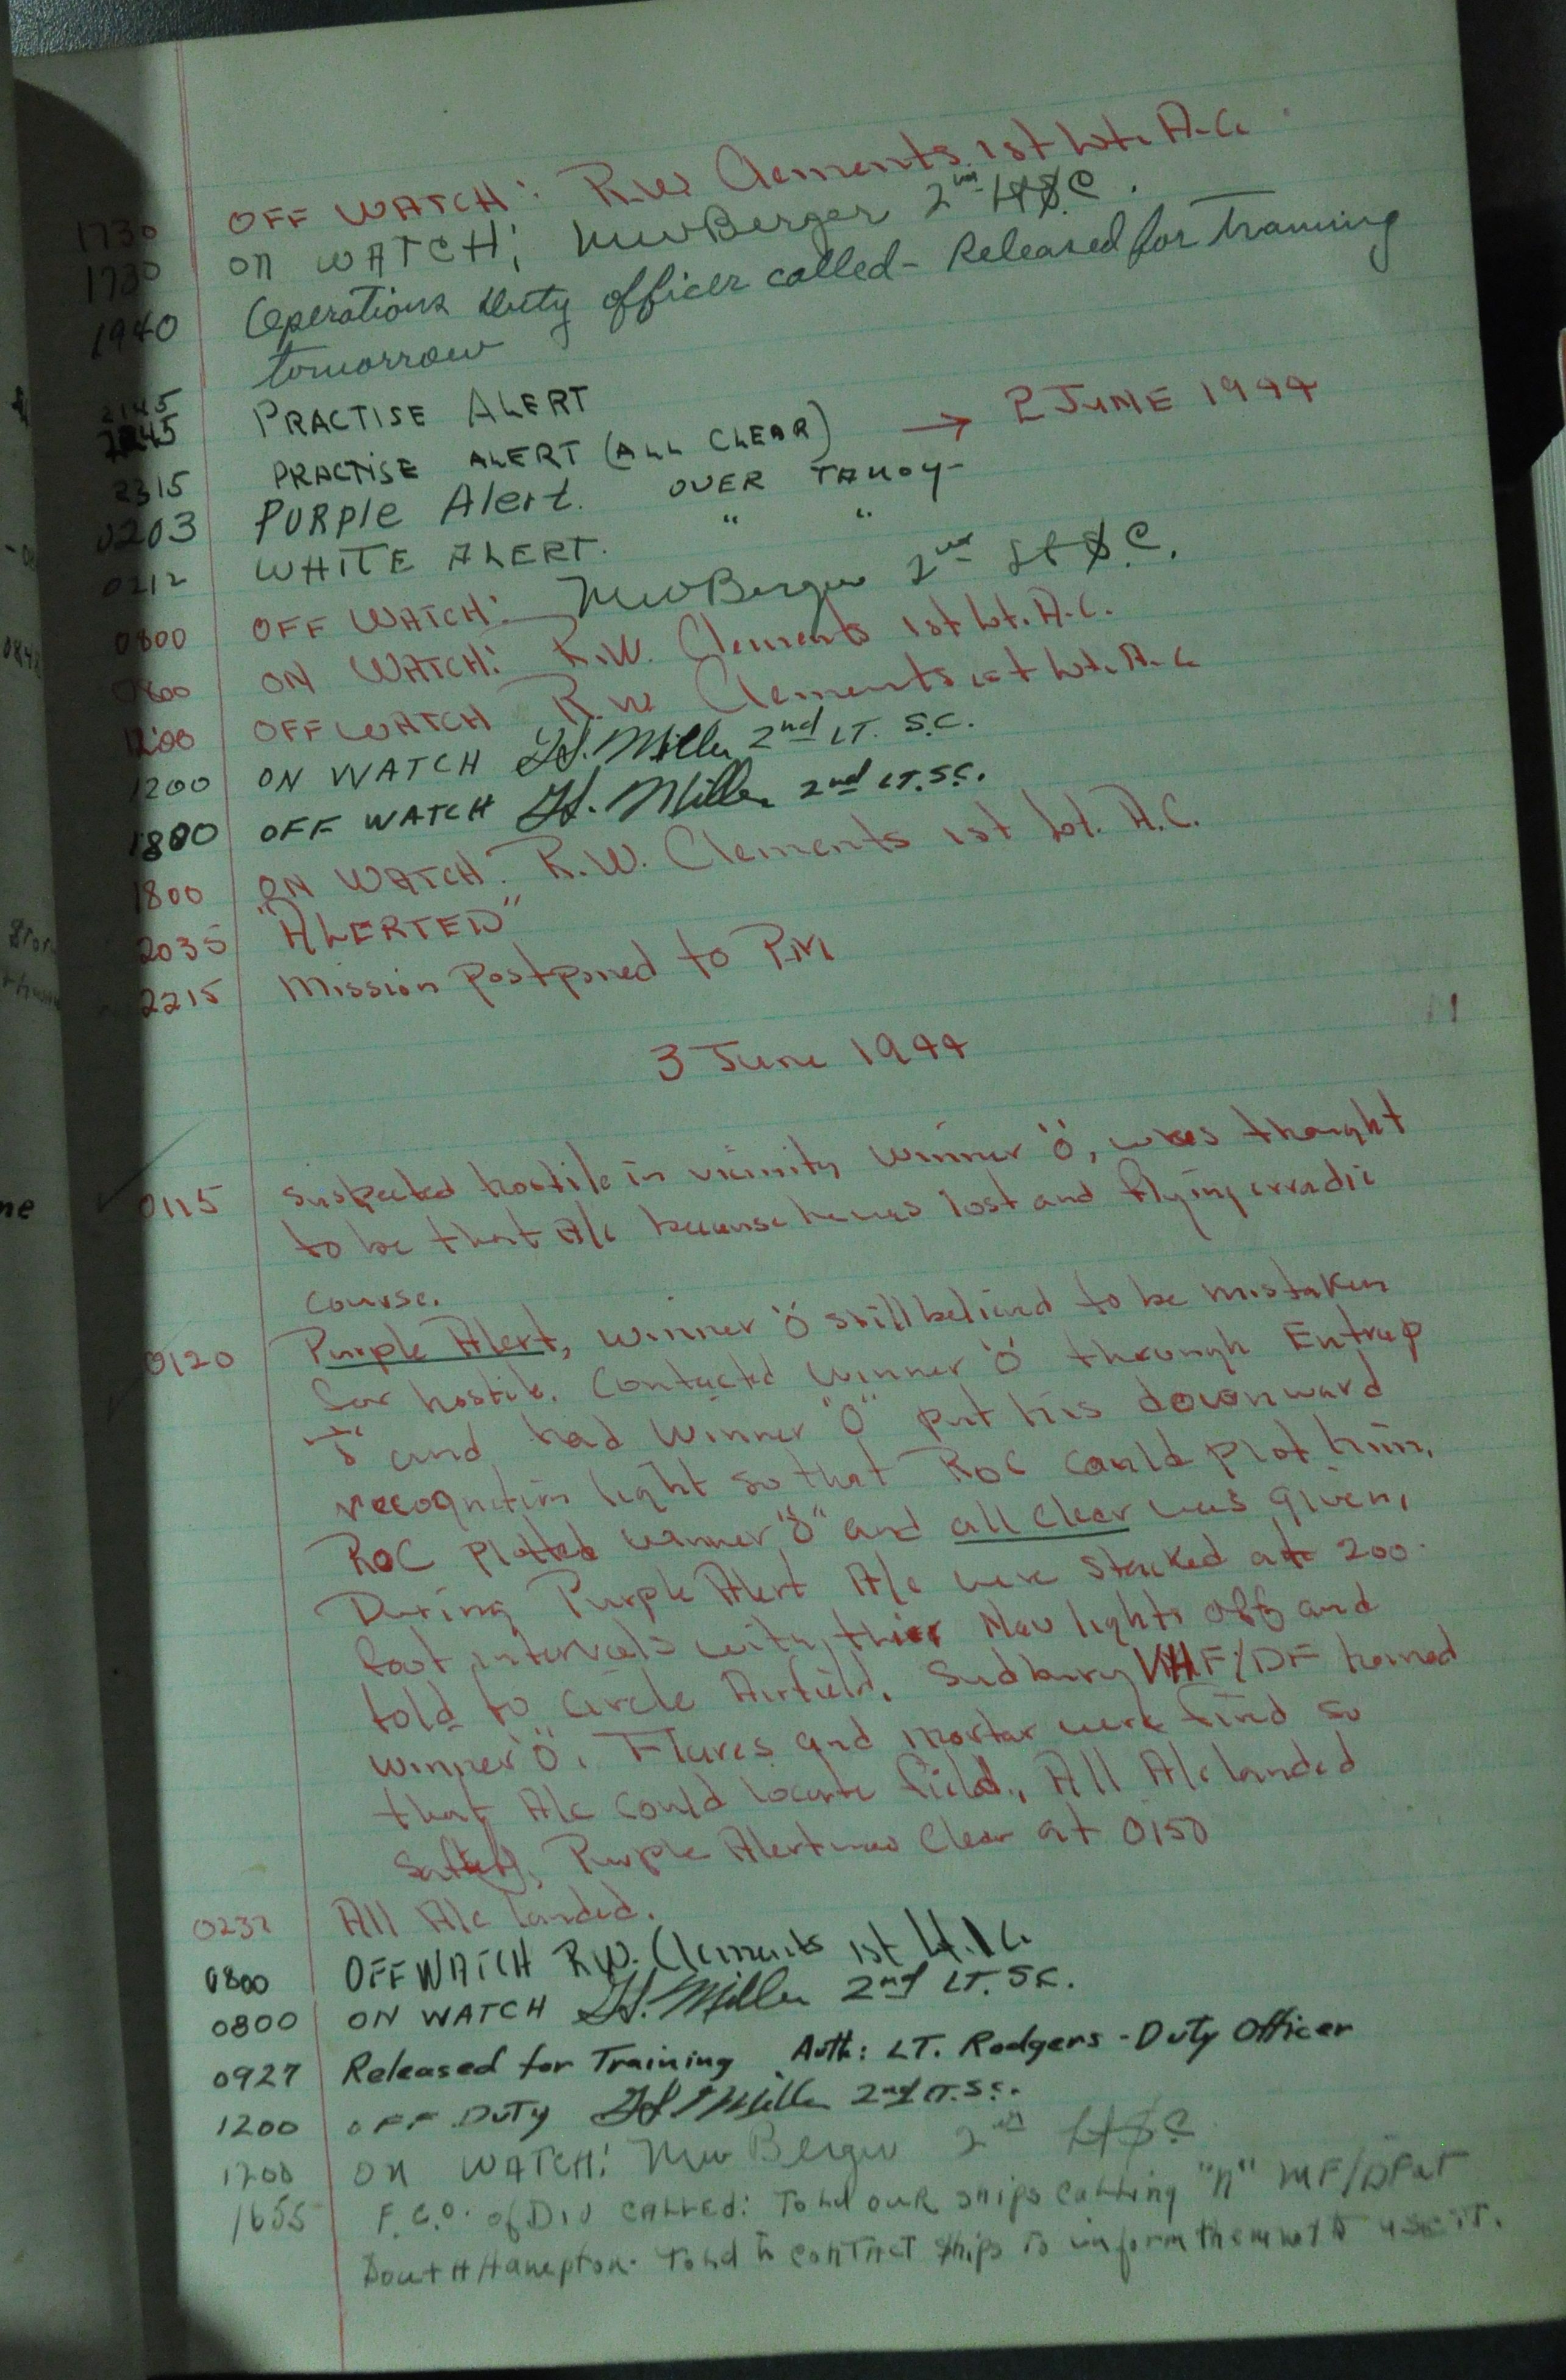 1730 OFF WATCH: R.W. Clements 1st Lt. A.C.
1730 On WATCH: MWBerger 2nd Lt S.C.
1940 Operations Duty officer called - Released for training
tomorrow
2145
2245 PRACTISE ALERT
2315 PRACTISE ALERT (ALL CLEAR) → 2 JUNE 1944
0203 PURPle Alert. OVER TANOY-
0212 WHITE ALERT. " "
0800 OFF WATCH: MWBerger 2nd Lt S.C.
0800 ON WATCH: R.W. Clements 1st Lt. A.C.
1200 OFF WATCH R.W. Clements 1st Lt. A.C.
1200 ON WATCH H. Miller 2nd LT. S.C.
1800 OFF WATCH H. Miller 2nd LT. S.C.
1800 ON WATCH: R.W. Clements 1st Lt. A.C.
2035 "ALERTED"
2215 Mission postponed to P.M.
3 June 1944
0115 Suspected hostile in vicinity Winner "O", was thought
to be that A/c because he was lost and flying erradic
course.
0120 Purple Alert, Winner "O" still believed to be mistaken
for hostile. Contacted Winner "O" through Entrap
and had Winner "O" put his downward
recognition light so that ROC could plot him.
ROC plotted Winner "O" and all clear was given.
During Purple Alert A/c were stacked at 200
foot intervals with thier Nav lights off and
told to circle Airfield. Sudbury VHF/DF homed
Winner "O". Flares and mortar were fired so
that A/c could locate field. All A/c landed
safely. Purple Alert was Clear at 0150
0232 All A/c landed.
0800 OFF WATCH R.W. Clements 1st Lt. A.C.
0800 ON WATCH H. Miller 2nd LT. S.C.
0927 Released for Training Auth: LT. Rodgers - Duty Officer
1200 OFF DUTY H. Miller 2nd LT. S.C.
1200 On WATCH: MW Berger 2nd Lt S.C
1655 F.C.O. of DIV CALLED: Told our ships calling "n" MF/DF at
SoutHHampton. Told to contact ships to inform them not to use it.